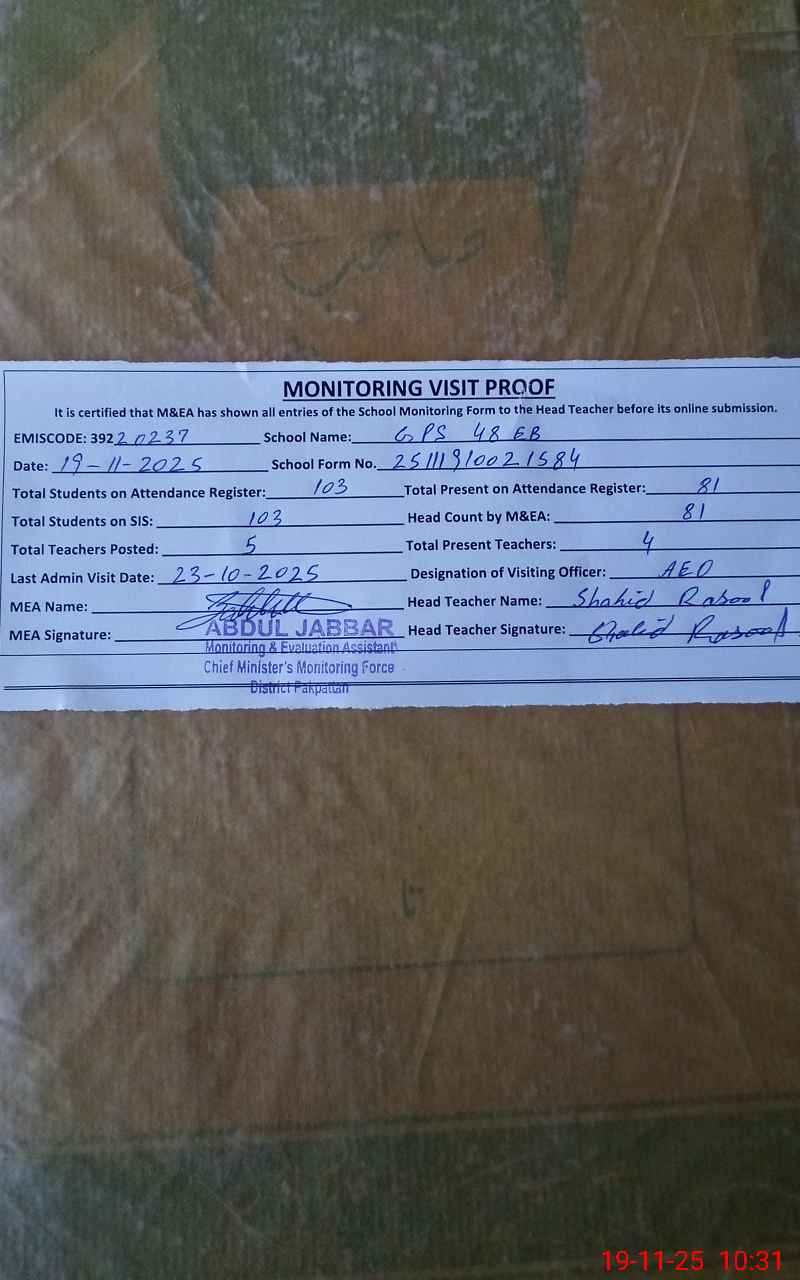 صاحب
MONITORING VISIT PROOF
It is certified that M&EA has shown all entries of the School Monitoring Form to the Head Teacher before its online submission.
EMISCODE: 39220237 School Name: GPS 48 EB
Date: 19-11-2025 School Form No. 25111910021584
Total Students on Attendance Register: 103 Total Present on Attendance Register: 81
Total Students on SIS: 103 Head Count by M&EA: 81
Total Teachers Posted: 5 Total Present Teachers: 4
Last Admin Visit Date: 23-10-2025 Designation of Visiting Officer: AEO
MEA Name: Head Teacher Name: Shahid Rasool
MEA Signature: ABDUL JABBAR Head Teacher Signature: Shahid Rasool
Monitoring & Evaluation Assistant
Chief Minister's Monitoring Force
District Pakpattan
تا
19-11-25 10:31